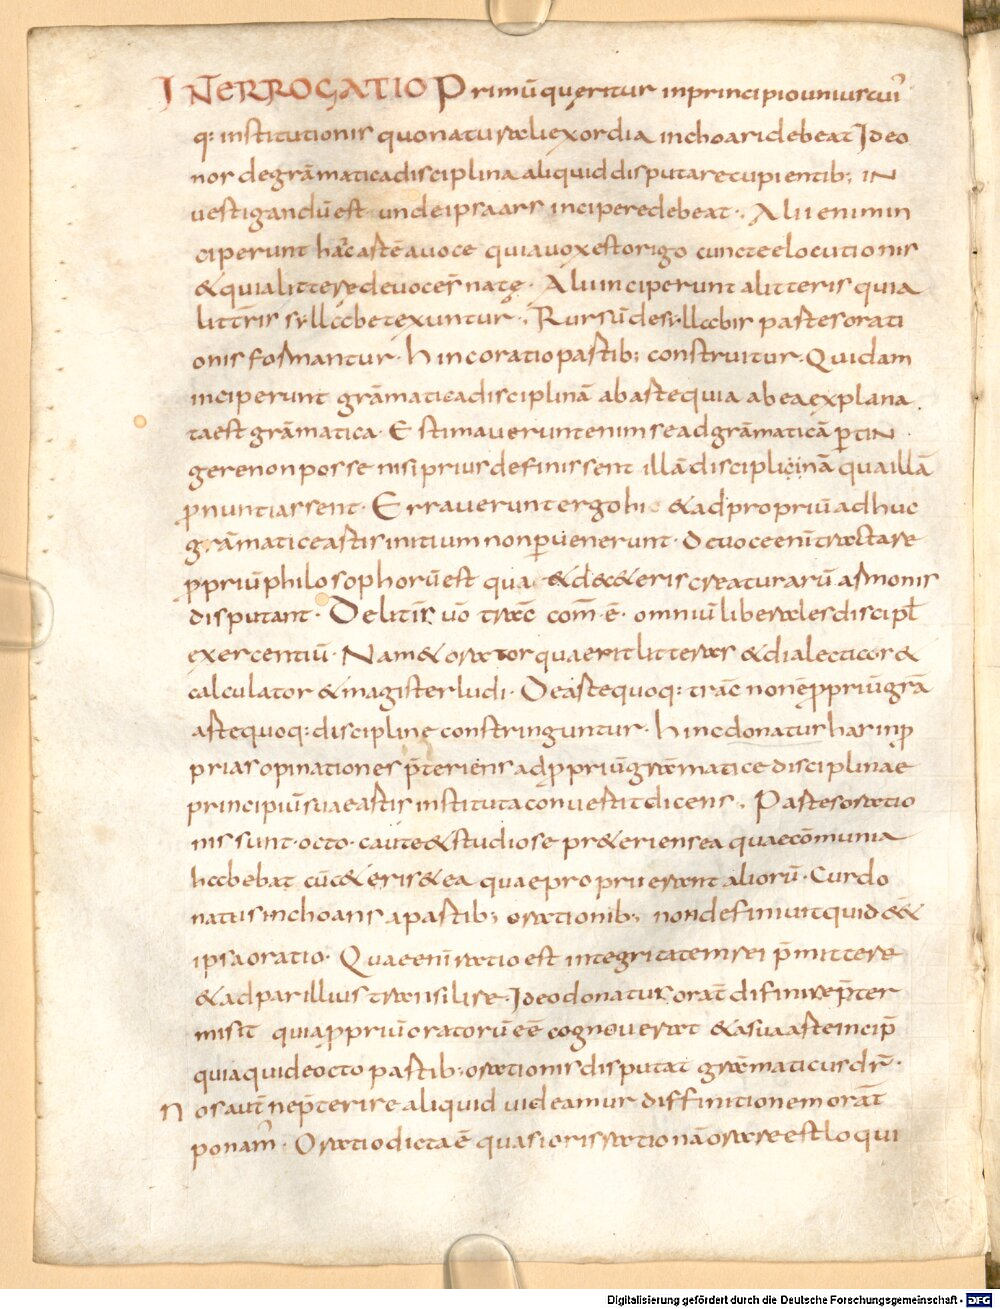 INTERROGATIO Primū queritur inprincipio uniuscui
q: institutionis quo naturali exordia inchoari debeat Ideo
nor degrāmatica disciplina aliquid disputare cupientib; IN
uestigandū est unde ipsa ars incipere debeat. Alii enim in
ciperunt hāc artē auoce quia uox est origo cuncte elocutionis
& quia littere deuoce sr̄ nate. Alii inciperunt alitteris quia
littr̄is syllabe texuntur. Rursū desyllabis partes orati
onis formantur. hinc oratio partib; construitur. Quidam
inciperunt grāmatica disciplinā ab arte quia ab ea explana
ta est grāmatica. Estimauerunt enim se ad grāmaticā ꝑtiN
gere non posse nisi prius definissent illā disciplicinā qua illā
ꝓnuntiassent. Errauerunt ergo hi & ad propriū adhuc
grāmatice artis initium non ꝑuenerunt. De uoce enī tractare
ꝓpriū philosophorū est qua & de c&eris creaturarū armonis
disputant. De litīs uō trac̄ com̄ ē. omniū liberales discipl̄
exercentiū. Nam & orator quaerit litteras & dialecticor &
calculator & magister ludi. De arte quoq: trac̄ non ē ꝓpriū grā
arte quoq: discipline constringuntur. hinc donatus has inꝓ
prias opinationes p̄teriens ad ꝓpriū gramatice disciplinae
principiū suae artis instituta conuestit dicens. Partes oratio
nis sunt. octo. caute & studiose pr&eriens ea quae cōmunia
habebat cū c&ēris & ea quae proprii erant aliorū. Cur do
natus inchoans a partib; orationib; non definiuit quid e&
ipsa oratio. Quae enī ratio est integritatem rei p̄mittere
& ad par illius transilire. Ideo donatus orat̄ difinire p̄ter
misit quia ꝓpriū oratorū eē cognouerat & a sua arte incip̄
quia quide octo partib; orationis disputat gramaticus dr̄.
Nos aut̄ ne p̄terire aliquid uideamur diffinitionem orat̄
ponam̄. Oratio dicta ē quasi oris ratio nā orare est loqui
Digitalisierung gefördert durch die Deutsche Forschungsgemeinschaft - DFG